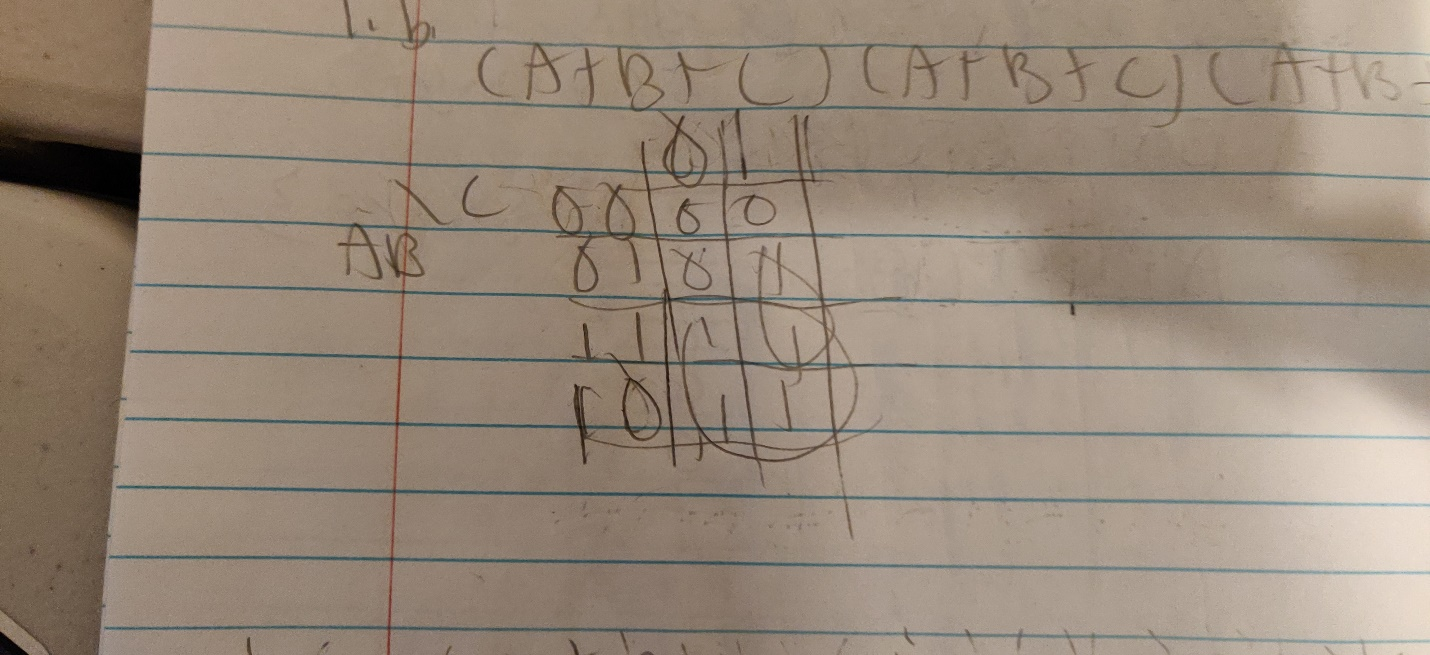 1. b.
(A+B+C) (A+B+C) (A+B+
0 1
\ C 00 0 0
AB 01 0 1
11 1 1
10 1 1